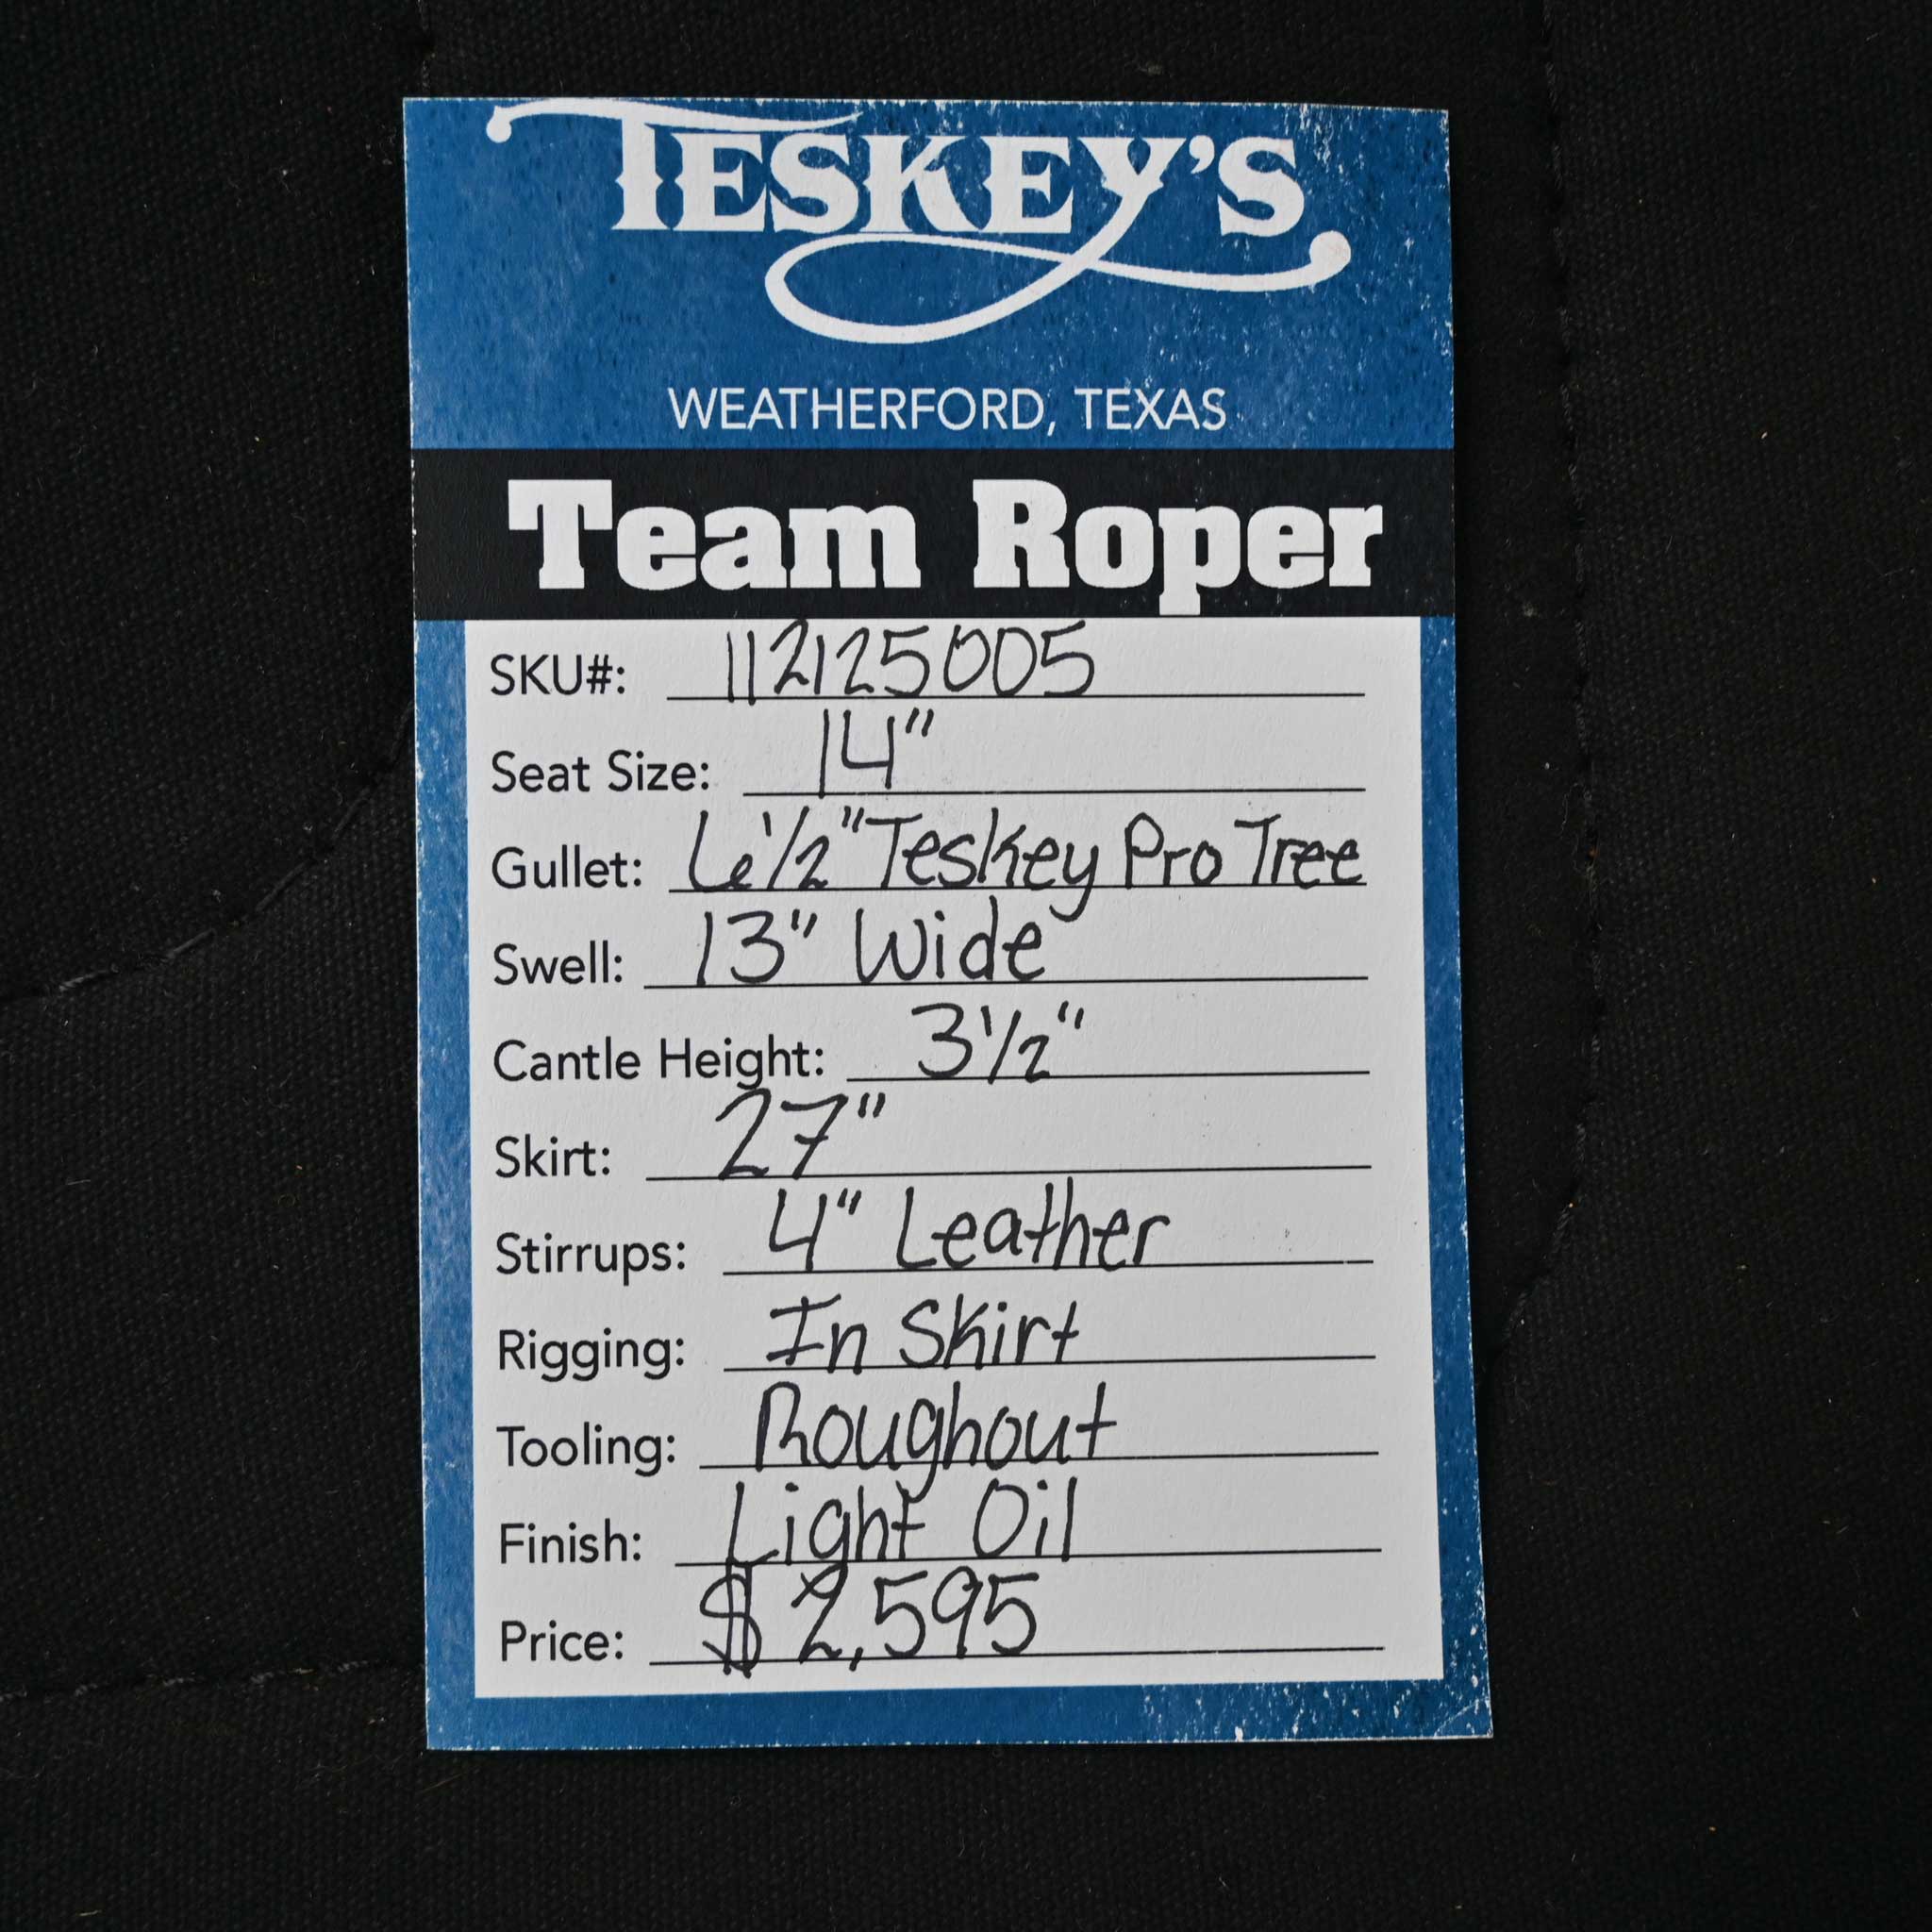 TESKEY'S
WEATHERFORD, TEXAS
Team Roper
SKU#: 112125005
Seat Size: 14"
Gullet: 6 1/2" Teskey Pro Tree
Swell: 13" Wide
Cantle Height: 3 1/2"
Skirt: 27"
Stirrups: 4" Leather
Rigging: In Skirt
Tooling: Roughout
Finish: Light Oil
Price: $2,595